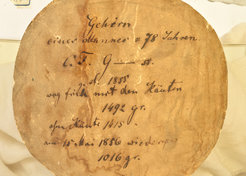 Gehirn
eines Mannes v. 78 Jahren
C. F. G—— ss.
d. 1855
wog frisch mit den Häuten
1492 gr.
ohne Häute 1415
am 15 Mai 1856 wiederum
1016 gr.